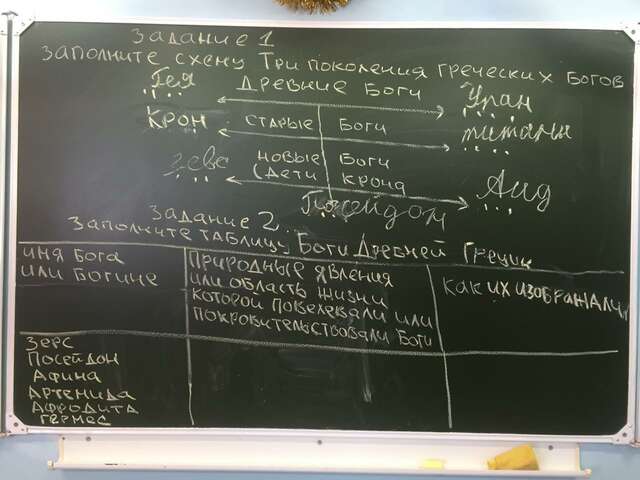 Задание 1
Заполните схему Три поколения греческих богов
Гея Древние Боги Уран
Крон старые Боги титаны
Зевс новые Боги Аид
(Дети Крона
Посейдон
Задание 2
Заполните таблицу Боги Древней Греции
имя бога
или богине
природные явления
или область жизни
которой повелевали или
покровительствовали Боги
как их изображали
Зерс
Посейдон
Афина
Артенида
Афродита
гермес